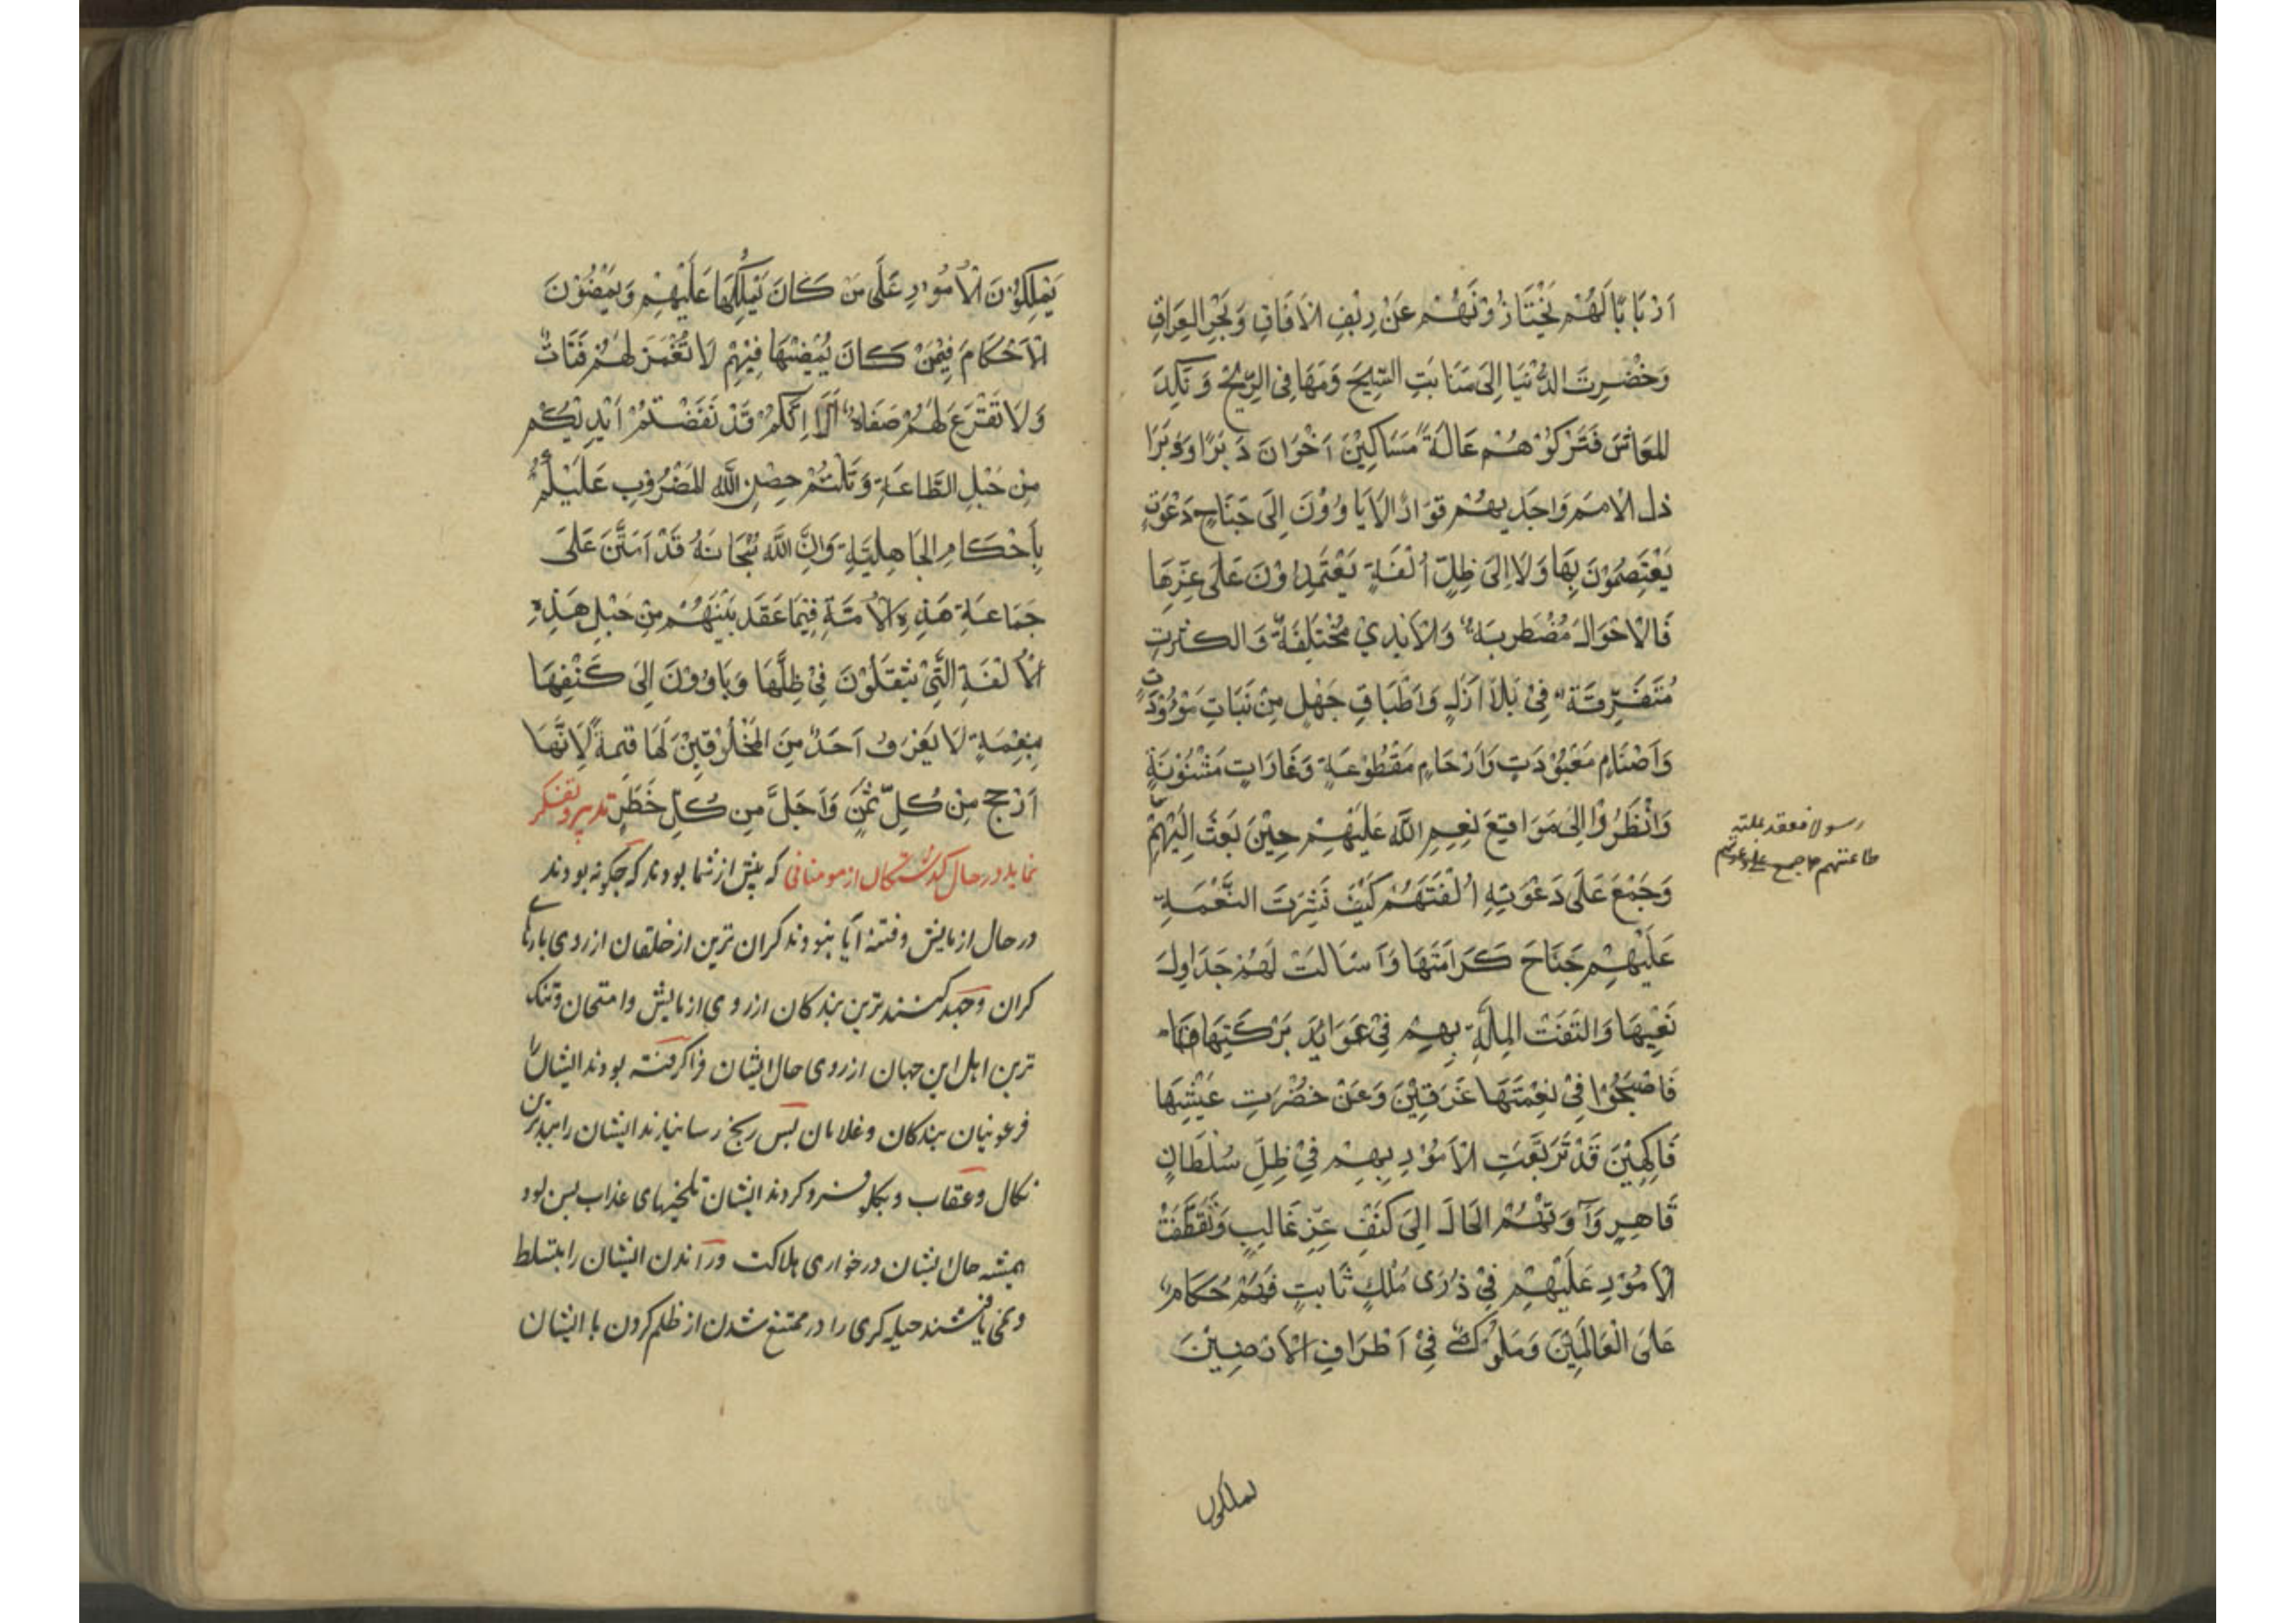 اَرْبَابًا لَهُمْ يَخْتَازُوْنَهُمْ عَنْ رِيْفِ الْآفَاقِ وَبَحْرِ العِرَاقِ
وَخُضْرِتَ الدُّنْيَا اِلَى مَنَابَتِ الشِّيحَ وَمَهَافِى الرِّيْحْ وَنَكِدَ
المَعَاشَ فَتَرَكُوْهُمْ عَالَةً مَسَاكِيْنَ اَخْوَانَ دَبَرًا وَوَبَرًا
ذل الاُمَمَ وَاجَدِيهُمْ قَوَارًا لَا يَاوُوْنَ اِلَى جَنَاحِ دَعْوَتٍ
يَعْتَصِمُوْنَ بِهَا وَلَا اِلَى ظِلِّ اُلْفَةٍ يَعْتَمِدُوْنَ عَلَى عِزِّهَا
فَالْاَحْوَالَ مُضْطَرِبَةٌ وَالْاَيْدِيْ مُخْتَلِفَةٌ وَالكثرتِ
مُتَفَرِّقَةٌ فِىْ بَلَاْ اَزْلٍ وَاَطْبَاقِ جَهْلٍ مِنْ نَبَاتِ مَوْؤُدَتٍ
وَاَصْنَامٍ مَعْبُوْدَتٍ وَاَرْحَامٍ مَقْطُوْعَةٍ وَغَارَاتٍ مَشْنُوْنَةٍ
وَانْظُرُوْا اِلَىَ مَوَاقِعَ نِعِمِ اللّٰهِ عَلَيْهِمْ حِيْنَ بَعَثَ اِلَيْهِمْ
رسولا فعقد بملته
طاعتهم و جمع على دعوتهم
وَجَمْعَ عَلَى دَعْوَتِهِ اُلْفَتَهُمْ كَيْفَ نَشِرَتَ النَّعْمَةِ
عَلَيْهِمْ جَنَاحَ كَرَامَتَهَا وَاَسَالَتْ لَهُمْ جَدَاوِلَ
نَعِيْمِهَا وَالتَفَّتْ المِلَّةِ بِهِمْ فِىْ عَوَائِدَ بَرْكَتِهَا
فَاَصْبَحُوْا فِىْ نِعْمَتَهَا غَرَقِيْنَ وَعَنْ خُضْرَتِ عَيْشِهَا
فَاكِهِيْنَ قَدْ تَرَبَّعَتِ الْاُمُوْرِ بِهِمْ فِىْ ظِلِّ سُلْطَانٍ
قَاهِرٍ وَآوَتْهُمْ الحَالَ اِلَى كَنَفِ عِزٍّ غَالِبٍ وَتَعَطَّفَتْ
الْاُمُوْرِ عَلَيْهِمْ فِىْ ذُرَى مُلْكٍ ثَابِتٍ فَهُمْ حُكَّامٌ
عَلَى الْعَالَمِيْنَ وَمُلُوْكٌ فِىْ اَطْرَافِ الْاَرَضِيْنَ
يملكون
يَمْلِكُوْنَ الْاُمُوْرِ عَلَى مَنْ كَانَ يَمْلِكُهَا عَلَيْهِمْ وَيَمْضُوْنَ
الْاَحْكَامَ فِيْمَنْ كَانَ يُمْضِيْهَا فِيْهِمْ لَا تُغْمَزَ لَهُمْ قَنَاتٌ
وَلَا تَقْرَعَ لَهُمْ صَفَاةٌ اَلَا اِنَّكُمْ قَدْ نَفَضْتُمْ اَيْدِيْكُمْ
مِنْ حَبْلِ الطَّاعَةِ وَثَلَمْتُمْ حِصْنِ اللّٰهِ المَضْرُوْبِ عَلَيْكُمْ
بِاَحْكَامِ الجَاهِلِيَّةِ وَاِنَّ اللّٰهَ سُبْحَانَهُ قَدْ اَمْتَنَّ عَلَىَ
جَمَاعَةِ هَذِهِ الْاُمَّةِ فِيْمَا عَقَدَ بَيْنَهُمْ مِنْ حَبْلِ هَذِهِ
الْاُلْفَةِ الَّتِىْ يَنْتَقَلُوْنَ فِىْ ظِلِّهَا وَيَاوُوْنَ اِلىَ كَنَفِهَا
بِنِعْمَةٍ لَا يَعْرَفُ اَحَدٌ مِنَ المَخْلُوْقِيْنَ لَهَا قِيْمَةً لِاَنَّهَا
اَرْجح مِنْ كُلِّ ثَمَنٍ وَاَجَلَّ مِنْ كُلِّ خَطَرٍ تدبر و تفكر
نمايد در حال گذشتگان از مومنانى كه پيش از شما بودند كه چگونه بودند
در حال ازمايش و فتنه آيا بنودند گران ترين از خلقان از روى بارهاى
گران و جهد كشنده ترين بندگان از روى ازمايش و امتحان و تنگ
ترين اهل اين جهان از روى حال ايشان فراگرفته بودند ايشان را
فرعونيان بندگان و غلامان پس رنج رسانيدند ايشان را ببدترين
نكال و عقاب و بگلو فرو كردند ايشان تلخيهاى عذاب پس بود
هميشه حال ايشان در خوارى هلاكت و رآندن ايشان را بتسلط
و نمى يافتند حيله گرى را در ممتنع شدن از ظلم كردن با ايشان